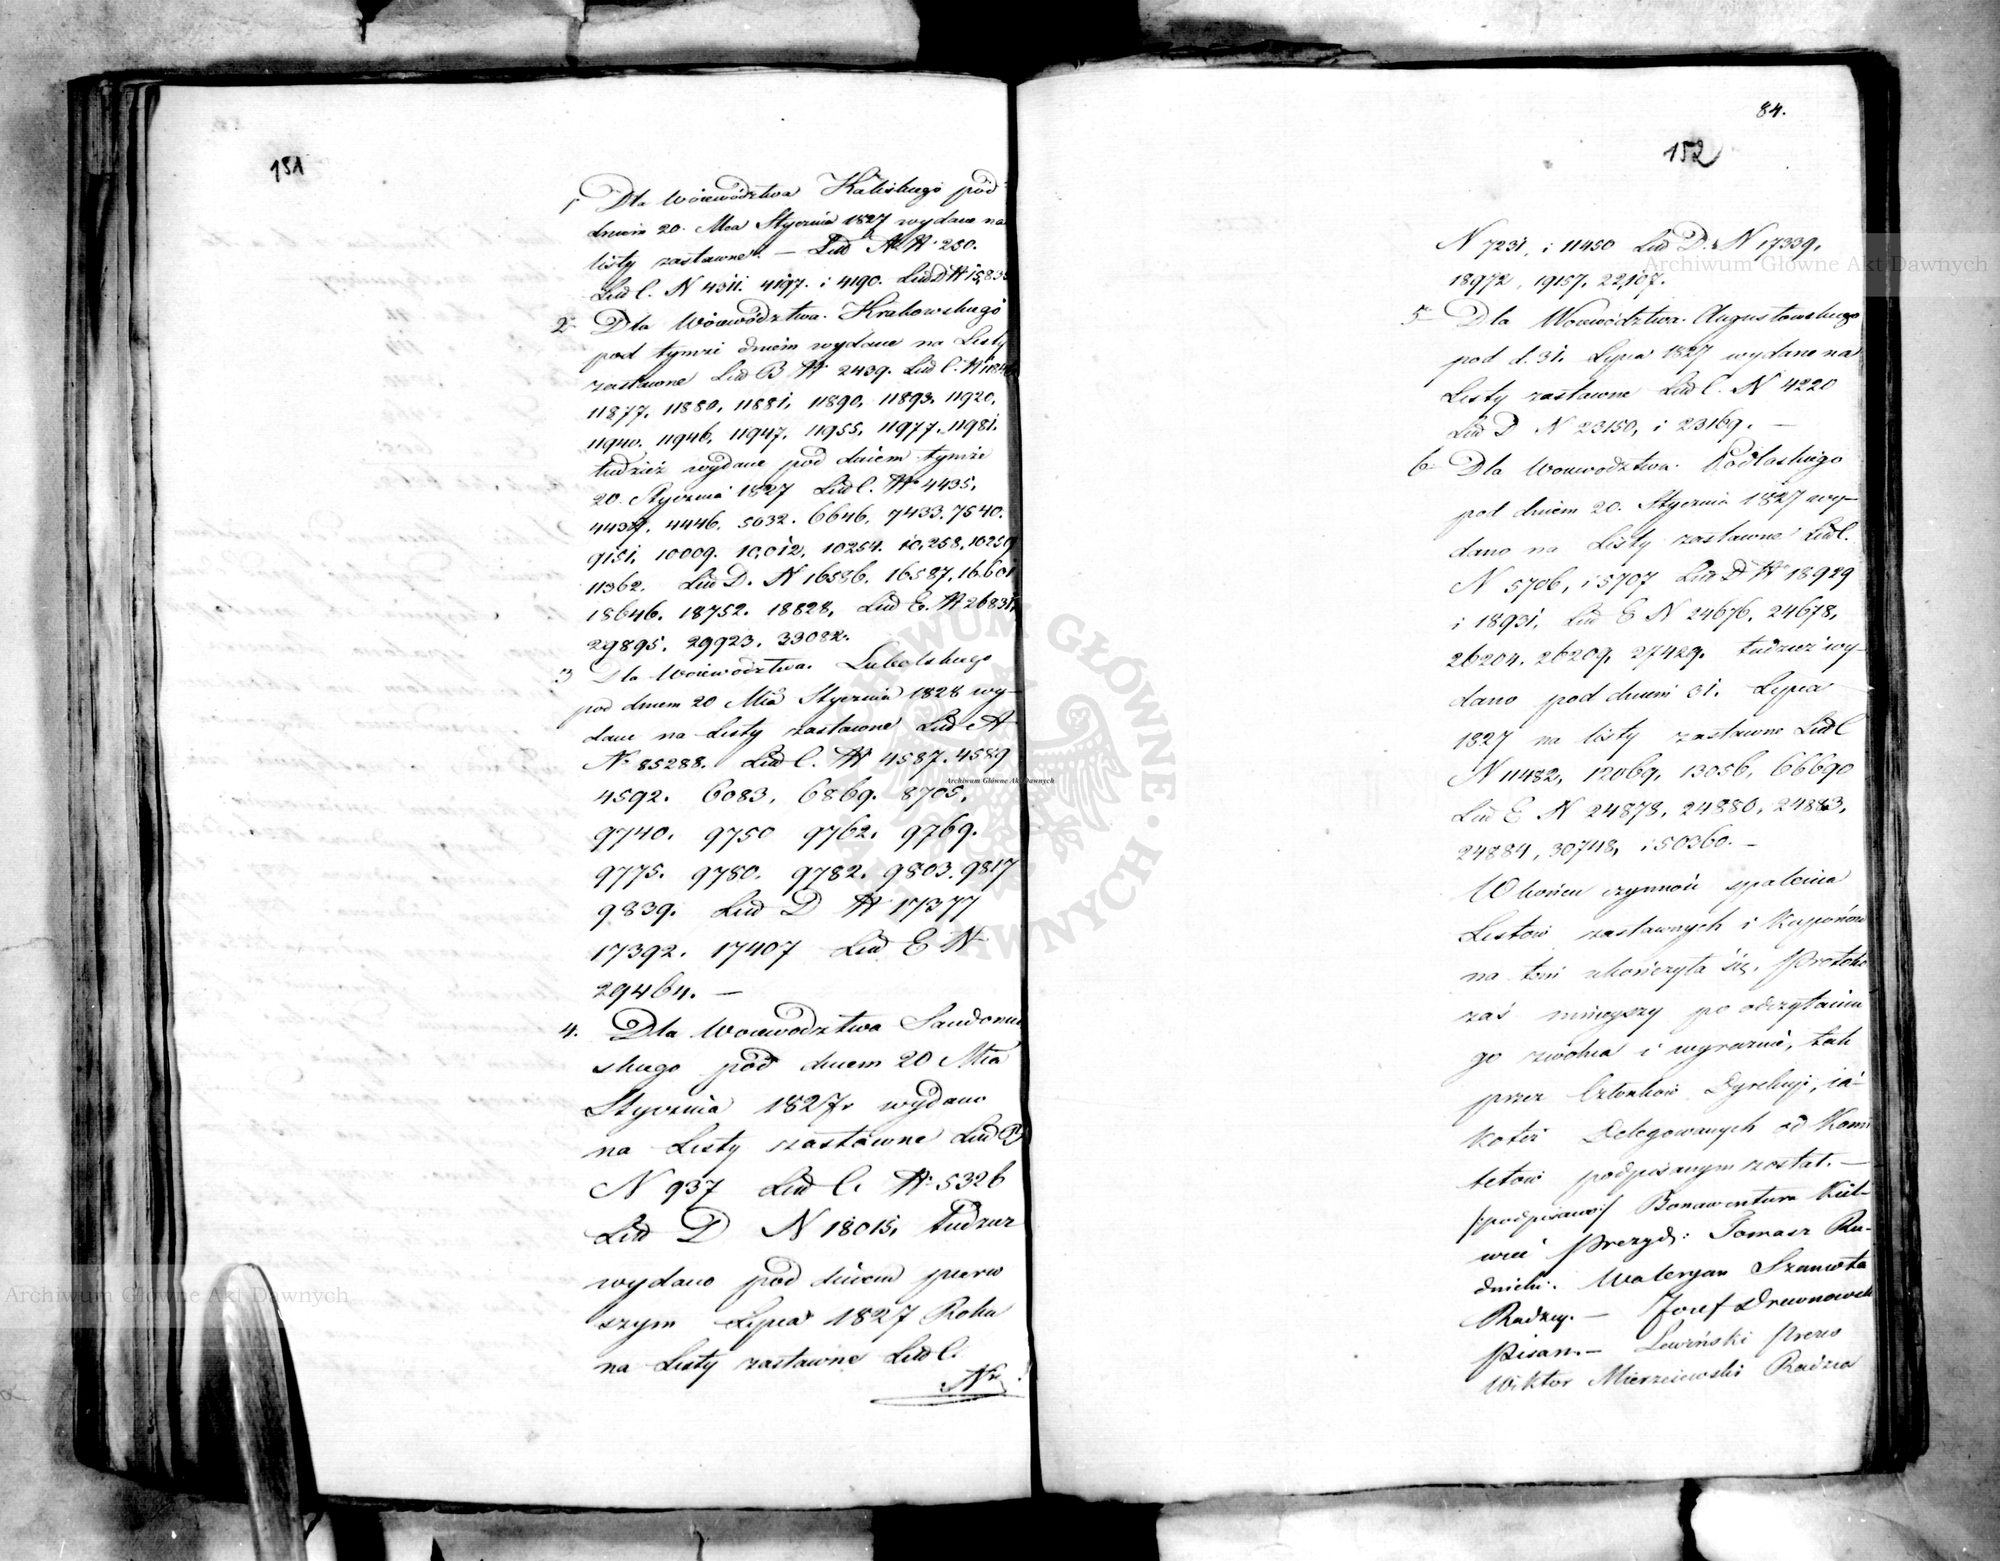 151
1, Dla Woiewództwa Kaliskiego pod
dniem 20. Mca Stycznia 1827 wydane na
listy zastawne. — Lud A N 250.
Lud C. N 4311. 4197. i 4190. Lud D N 15,835
2. Dla Woiewództwa. Krakowskiego
pod tymże dniem wydane na Listy
zastawne Lud B N 2439. Lud C. N
11877. 11880, 11881, 11890, 11893. 11920,
11940. 11946, 11947, 11955, 11977. 11981.
tudzież wydane pod dniem tymże
20. Stycznia 1827 Lud C. N 4435,
4437, 4446, 5032. 6646, 7433. 7540.
9151, 10009. 10,012, 10254. 10,258, 10259
11362. Lud D. N 16586. 16587, 16601
18646. 18752. 18828, Lud E. N 26831,
29895. 29923. 33082.
3 Dla Woiewództwa. Lubelskiego
pod dniem 20 Mca Stycznia 1828 wy-
dane na Listy zastawne Lud A
N 85288. Lud C. N 4587. 4589
4592. 6083, 6869. 8705,
9740. 9750 9762. 9769.
9775. 9780. 9782. 9803. 9817
9839. Lud D N 17377
17392. 17407 Lud E N
29464. —
4. Dla Woiewództwa Sandomir
skiego pod dniem 20 Mca
Stycznia 1827r wydano
na Listy zastawne Lud B
N 937 Lud C. N 5326
Lud D N 18015, tudzież
wydano pod dniem pierw
szym Lipca 1827 Roku
na Listy zastawne Lud C.
Nr
84.
152
N 7231, i 11450 Lud D. N 17339,
18972, 19157, 22,107.
5 Dla Woiewództwa. Augustowskiego
pod d. 31. Lipca 1827 wydano na
Listy zastawne Lud C. N 4220
Lud D N 23150, i 23169. —
6 Dla Woiewodztwa. Podlaskiego
pod dniem 20. Stycznia 1827 wy-
dano na Listy zastawne Lud C.
N 5706, i 5707 Lud D N 18929
i 18931, Lud E N 24676, 24678,
26204. 26209, 27429. tudzież wy-
dano pod dniem 31. Lipca
1827 na listy zastawne Lud C
N 11482, 12069, 13056, 66690
Lud E N 24878, 24880, 24883,
24884, 30748, i 50360. —
W końcu czynność spalenia
Listow zastawnych i Kuponów
na tem skończyła się, Protokó
zaś mnieyszy po odczytaniu
go zwolna i wyraznie, tak
przez Członków Dyrekcyi, ia-
koteż Delegowanych od Komi
tetow podpisanym został. —
/:podpisano:/ Bonawentura
Prezyd: Tomasz Ru-
dnicki. Waleryan Szamota
Radzcy. — Józef Drewnowski
Pisarz. — Lewiński Prezes
Wiktor Mierzeiewski Radzca
Archiwum Główne Akt Dawnych
Archiwum Główne Akt Dawnych
Archiwum Główne Akt Dawnych
ARCHIWUM GŁÓWNE AKT DAWNYCH